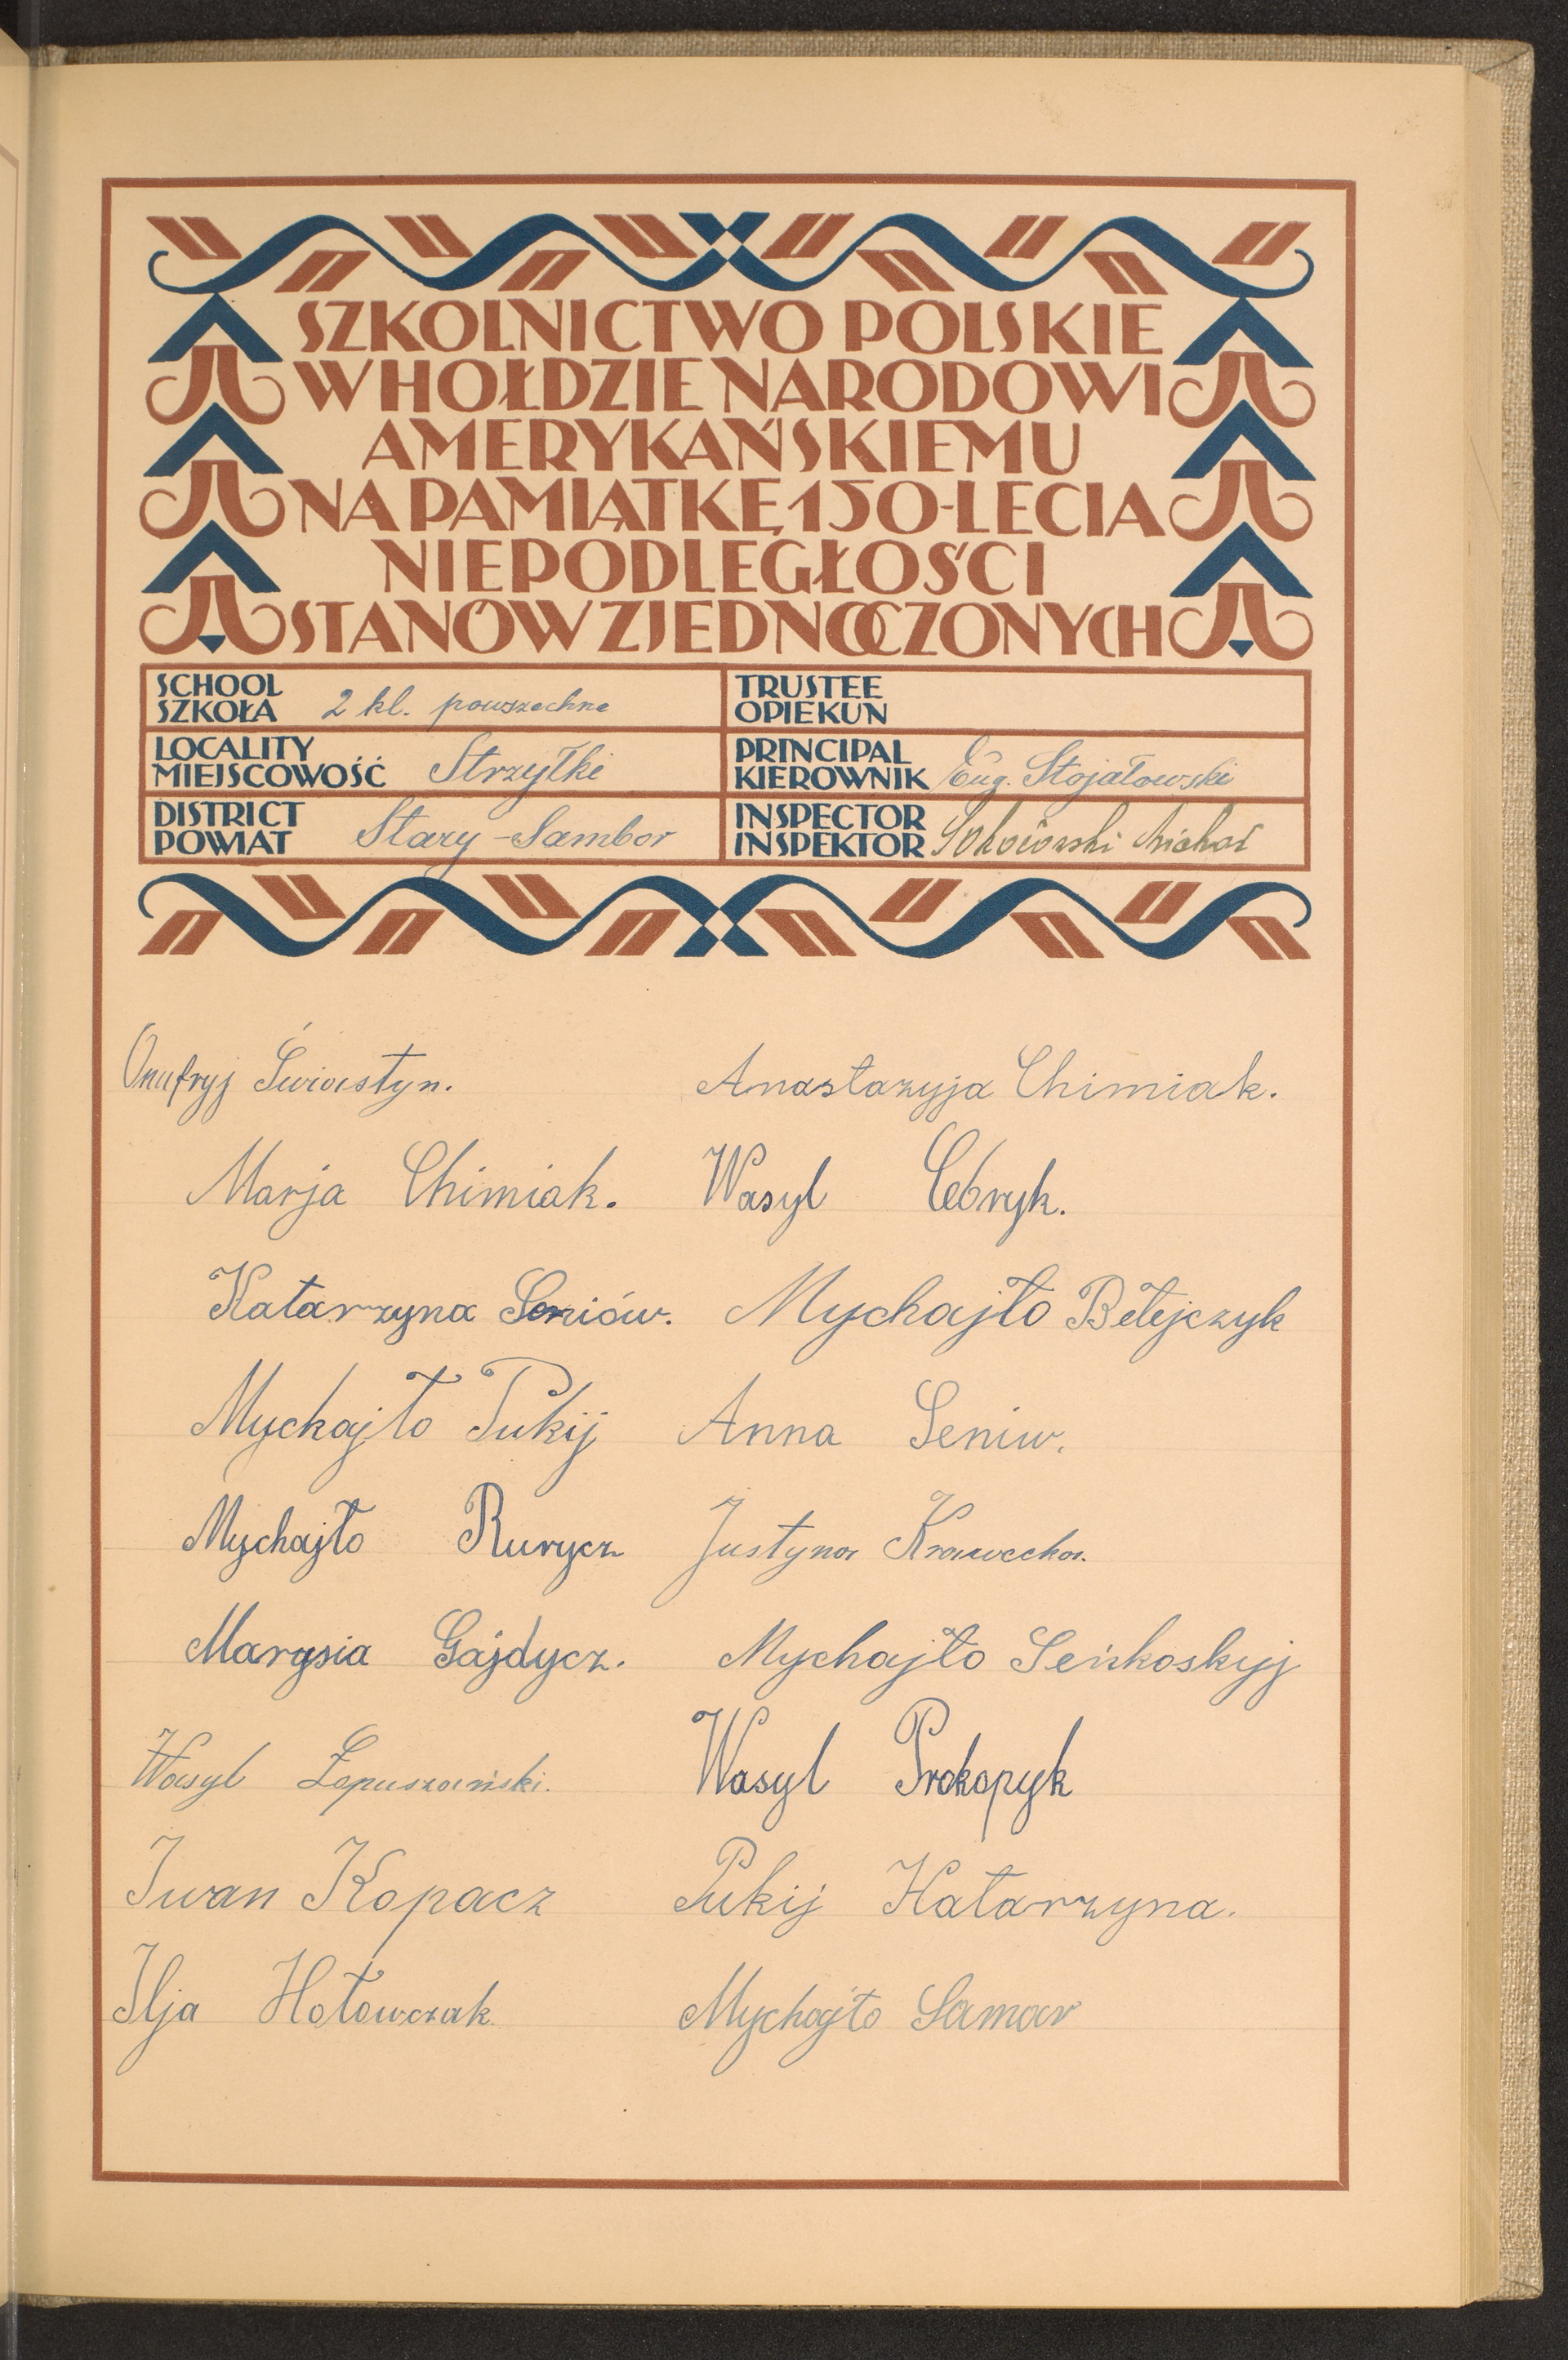 SZKOLNICTWO POLSKIE
W HOŁDZIE NARODOWI
AMERYKAŃSKIEMU
NA PAMIĄTKĘ 150-LECIA
NIEPODLEGŁOŚCI
STANÓW ZJEDNOCZONYCH
SCHOOL
SZKOŁA 2 kl. powszechna
TRUSTEE
OPIEKUN
LOCALITY
MIEJSCOWOŚĆ Strzyłki
PRINCIPAL
KIEROWNIK Eug. Stojałowski
DISTRICT
POWIAT Stary-Sambor
INSPECTOR
INSPEKTOR Michał
Onufryj Świastyn. Anastazyja Chimiak.
Marja Chimiak. Wasyl Cebryk.
Katarzyna Seniów. Mychajło Betejczyk
Myckajło Pukij Anna Seniw.
Mychajło Rurycz Justyna Krawecka.
Marysia Gajdycz. Mychajło Seńkoskyj
Wasyl Łopuszański. Wasyl Prokopyk
Iwan Kopacz Pukij Katarzyna.
Ilja Hołowczak. Mychajło Samar